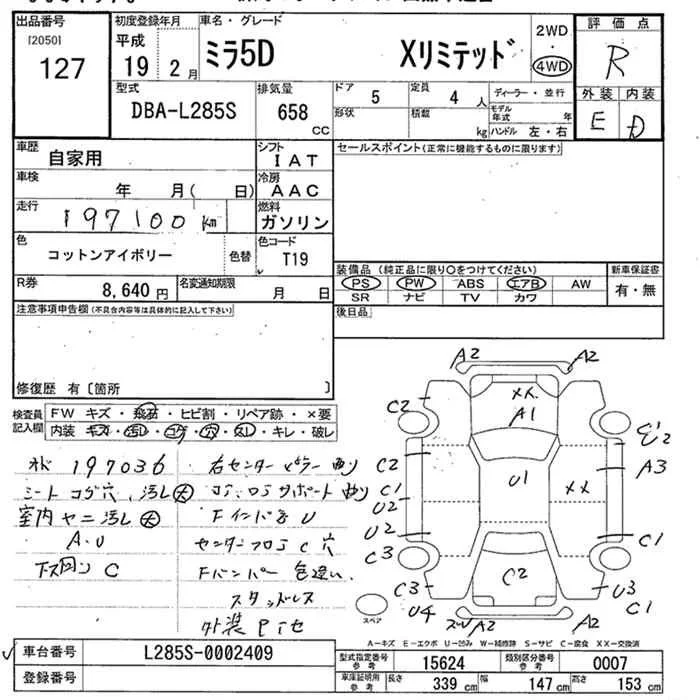 出品番号 初度登録年月 車名・グレード 2WD 評価点
[2050] 平成 4WD
127 19 2月 ミラ5D Xリミテッド R
型式 排気量 ドア 5 定員 4 人 ディーラー・並行 外装 内装
DBA-L285S 658 CC 形状 積載 kg モデル年式 年 E D
ハンドル 左・右
車歴 自家用 シフト IAT セールスポイント(正常に機能するものに限ります)
車検 年 月( 日) 冷房 AAC
走行 197100 km 燃料 ガソリン
色 コットンアイボリー 色替 色コード T19
装備品 (純正品に限り○をつけてください) 新車保証書
R券 8,640円 名変通知期限 月 日 PS PW ABS エアB AW 有・無
SR ナビ TV カワ
注意事項申告欄(不具合内容等は具体的に記入して下さい) 後日品
修復歴 有〔箇所 〕
検査員記入欄 FW キズ・飛石・ヒビ割・リペア跡・×要
内装 キズ・汚レ・コゲ・穴・スレ・キレ・破レ
197036 右センターピラー
シートコゲ穴、汚レ大 サポート
室内ヤニ汚レ大 U
A.U センターフロア C 穴
C Fバンパー色違い
スタッドレス
外装
A2 A2
XX
C2 A1
E'2
C2 A3
C1 U1 XX
U2
U2 C1
C3
C3 C2 U3
U4 A2 A2 C1
スペア
A-キズ E-エクボ U-凹み W-補修跡 S-サビ C-腐食 XX-交換済
車台番号 L285S-0002409 型式指定番号 参考 15624 類別区分番号 参考 0007
登録番号 車庫証明用 参考 長さ 339 cm 幅 147 cm 高さ 153 cm